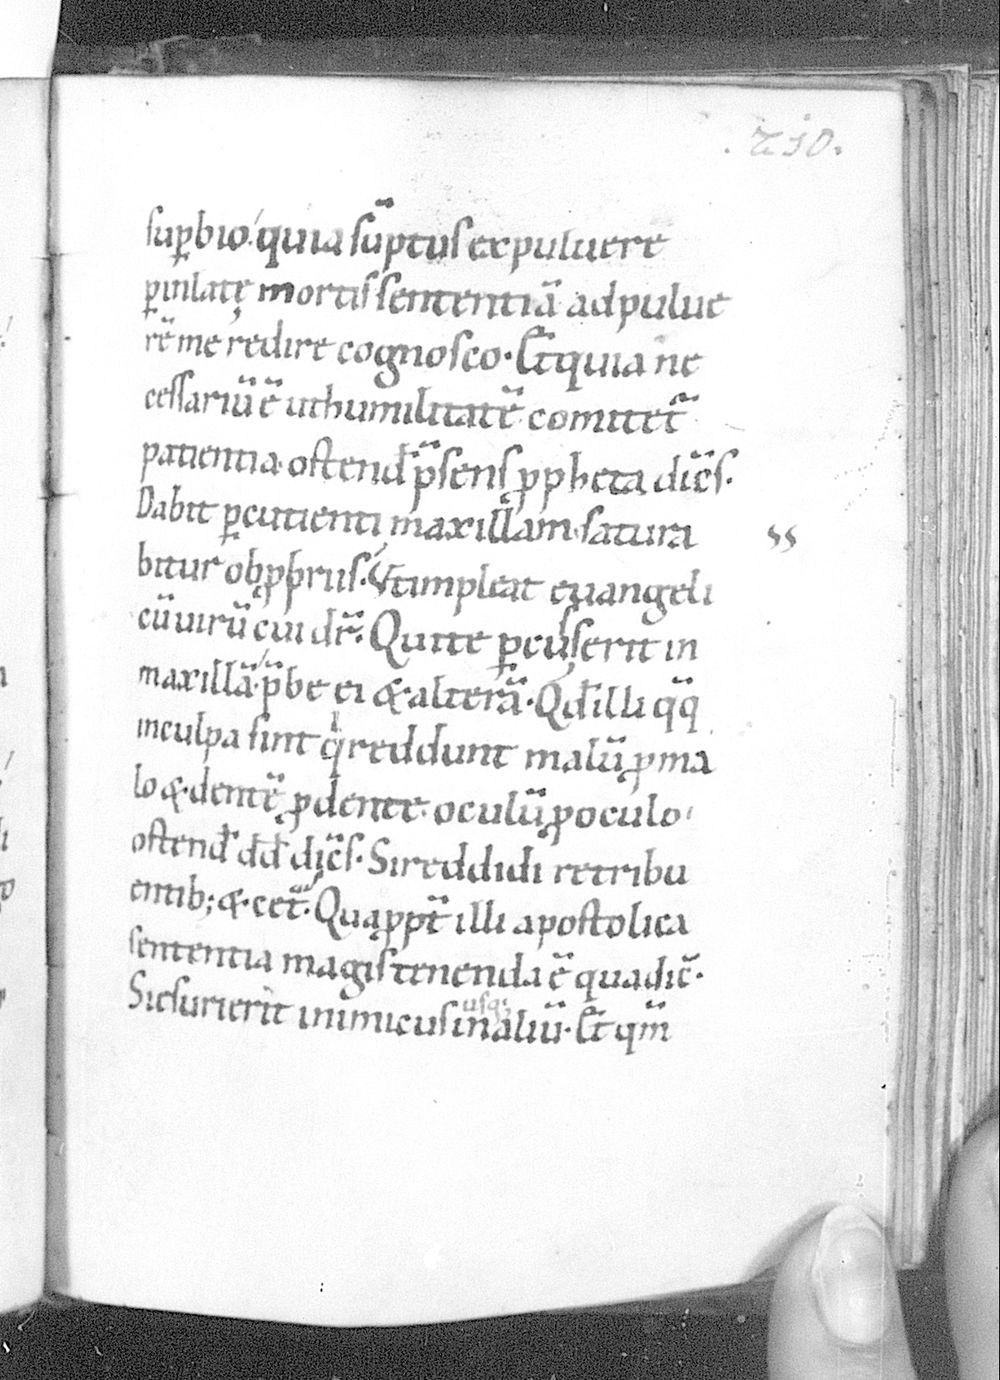 .210.
sup̱bio. quia sũptus ex puluere
p̱ inlatę mortis sententiã ad pulue
rẽ me redire cognosco. Et̃ quia ne
cessariũ ẽ ut humilitatẽ comitet̃
patientia. ostend̃ p̃sens ꝓpheta dic̃s.
Dabit p̱cutienti maxillam. satura
bitur obꝓbriis. Ut impleat euangeli
cũ uirũ cui dr̃. Qui te p̱cusserit in
maxillã. p̃be ei & alterã. Qd̃ illi qq̃
in culpa sint qͥ reddunt malũ ꝓ ma
lo & dentẽ ꝓ dente. oculũ ꝓ oculo.
ostend̃ dd̃ dic̃s. Si reddidi retribu
entib; & cet̃. Quaꝓpt̃ illi apostolica
sententia magis tenenda ẽ qua dic̃.
usq;
Si esurierit inimicus in aliũ. Et̃ qm̃